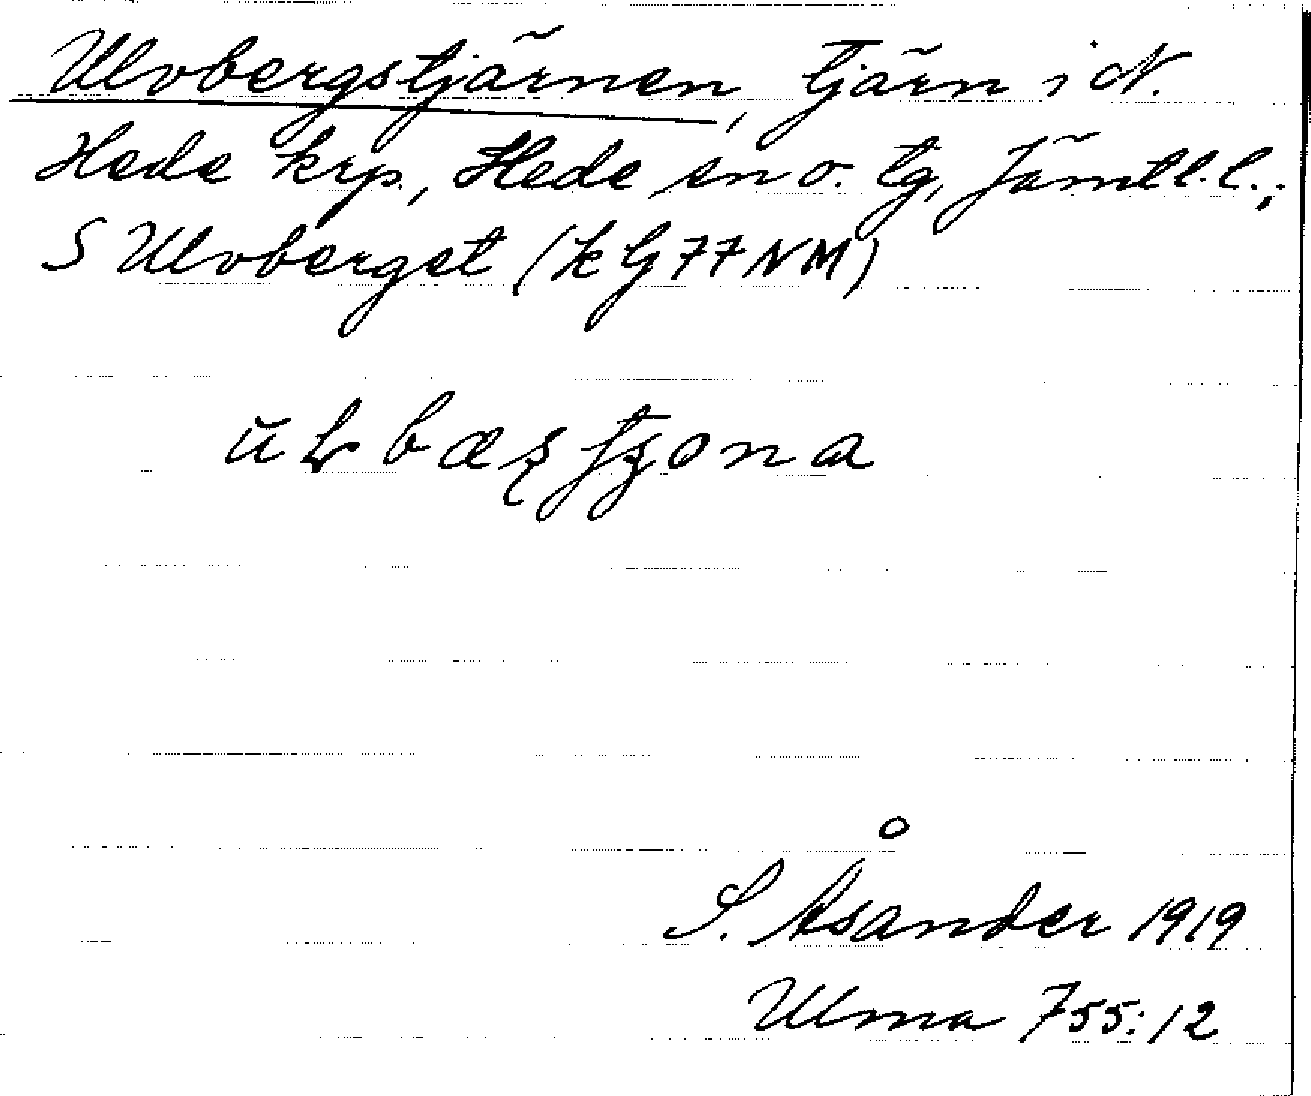 Ulvbergstjärnen, tjärn i N.
Hede krp., Hede sn o. tg, Jämtl. l.;
S Ulvberget (k G 77 NM)
S. Åsander 1919
Ulma 755:12